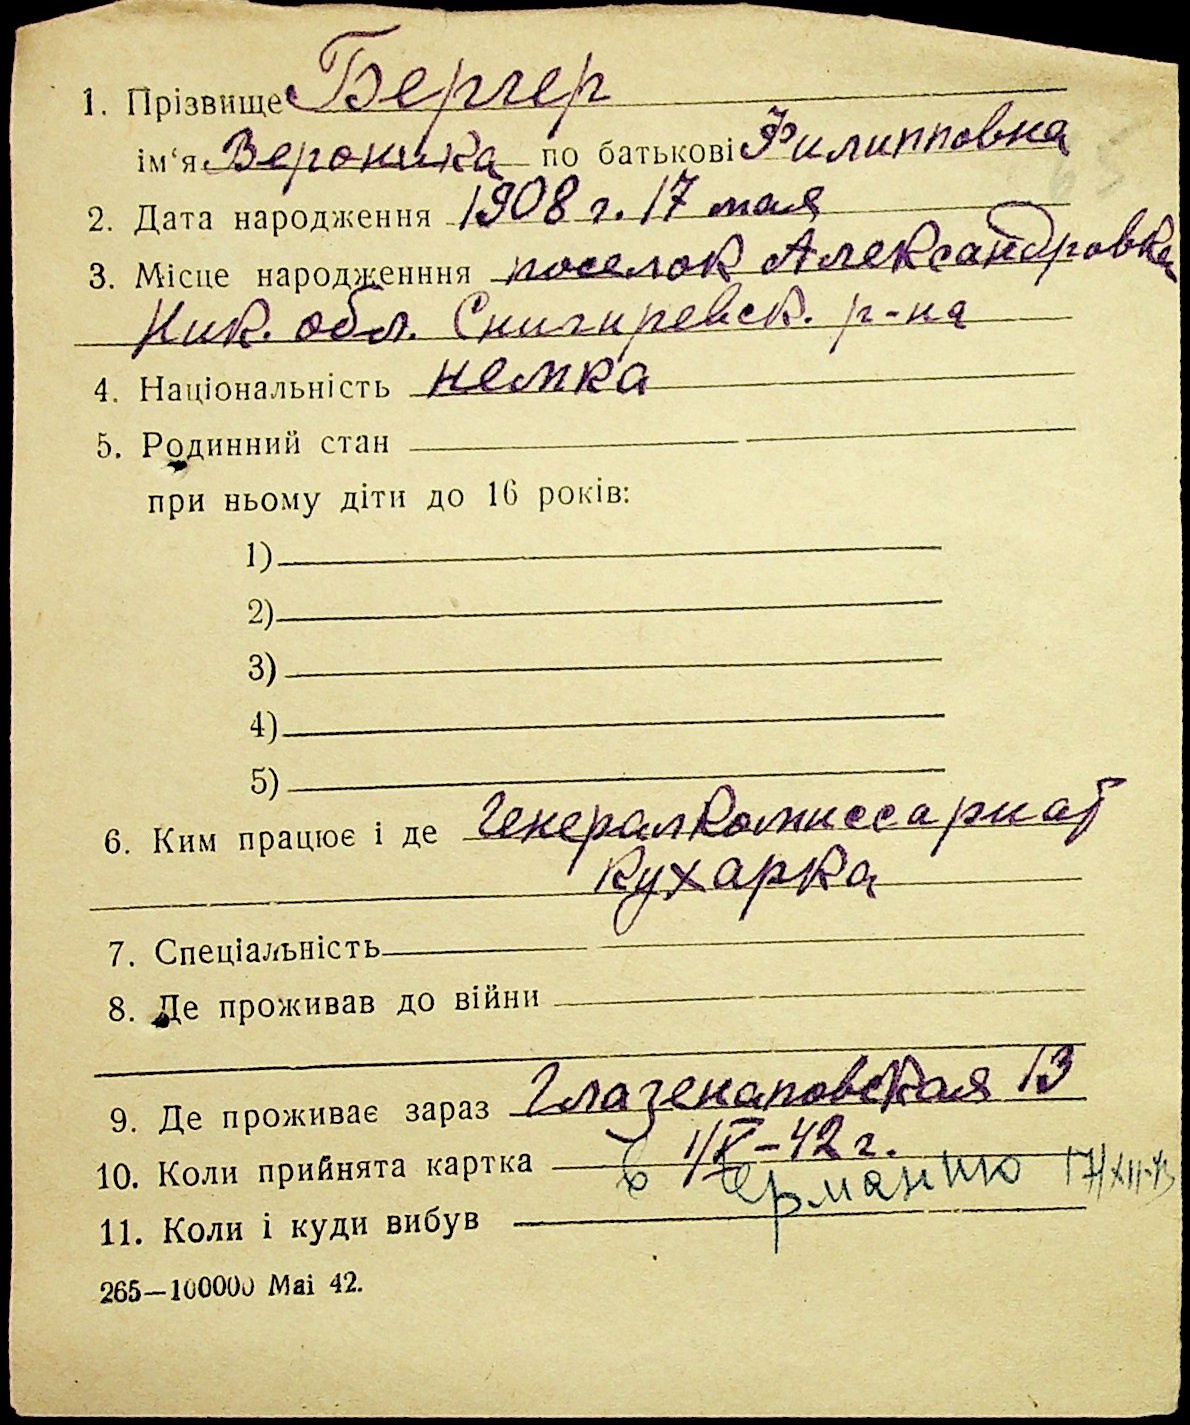 1. Прізвище Бергер
ім‘я Вероника по батькові Филипповна
2. Дата народження 1908 г. 17 мая
3. Місце народженння поселок Александровка
Ник. обл. Снигиревск. р-на
4. Національність немка
5. Родинний стан
при ньому діти до 16 років:
1)
2)
3)
4)
5)
6. Ким працює і де Генералкомиссариат
кухарка
7. Спеціальність
8. Де проживав до війни
9. Де проживає зараз Глазенаповская 13
10. Коли прийнята картка 1/X-42 г.
в Германию 17/XII-43
11. Коли і куди вибув
265—100000 Mai 42.